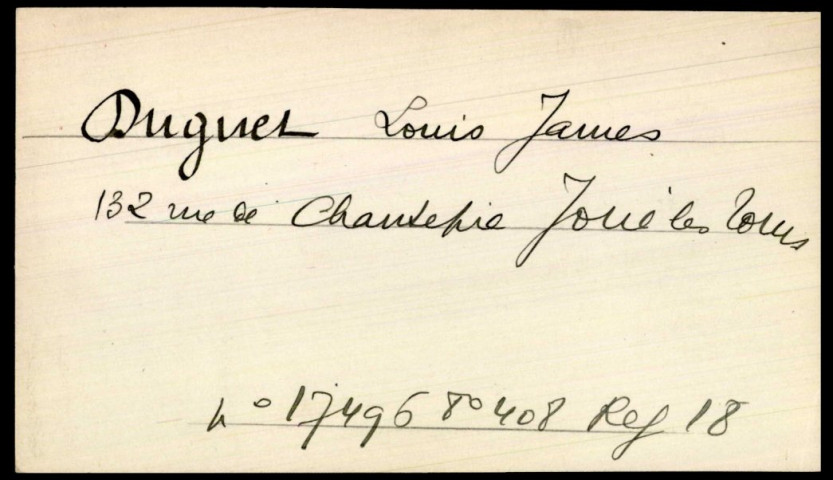 Duguet Louis James
132 rue de Chantepie Joué les Tours
n° 17496 F° 408 Reg 18